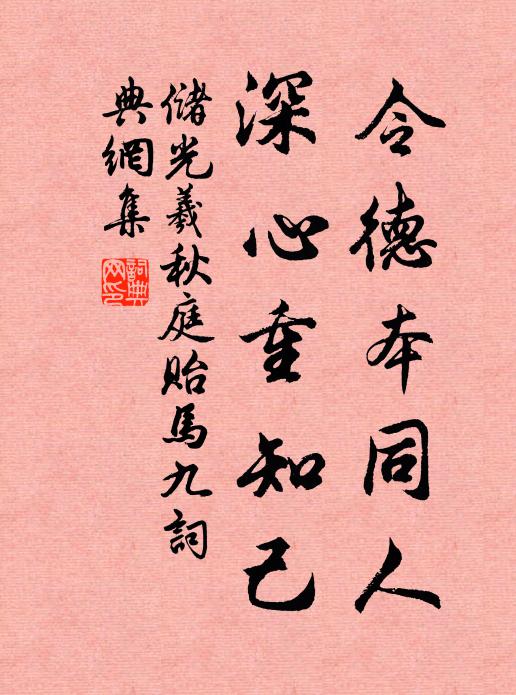 令德本同人
深心重知己
儲光羲秋庭貽馬九詞
典網集
詞典網印